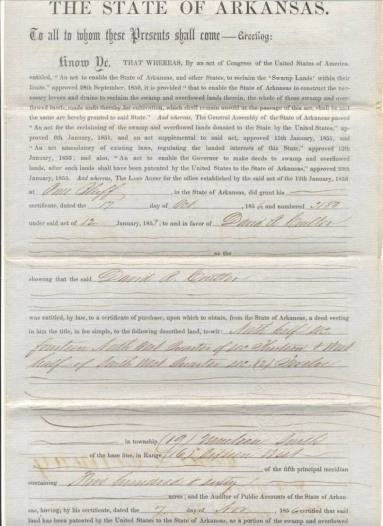 THE STATE OF ARKANSAS.
To all to whom these Presents shall come—Greeting:
Know Ye, THAT WHEREAS, By an act of Congress of the United States of America,
entitled, "An act to enable the State of Arkansas, and other States, to reclaim the "Swamp Lands" within their
limits," approved 28th September, 1850, it is provided "that to enable the State of Arkansas to construct the ne-
cessary levees and drains to reclaim the swamp and overflowed lands therein, the whole of those swamp and over-
flowed lands, made unfit thereby for cultivation, which shall remain unsold at the passage of this act, shall be and
the same are hereby granted to said State." And whereas, The General Assembly of the State of Arkansas passed
"An act for the reclaiming of the swamp and overflowed lands donated to the State by the United States," ap-
proved 6th January, 1851, and an act supplemental to said act, approved 12th January, 1851; and
"An act amendatory of existing laws, regulating the landed interests of this State," approved 12th
January, 1853; and also, "An act to enable the Governor to make deeds to swamp and overflowed
lands, after such lands shall have been patented by the United States to the State of Arkansas," approved 20th
January, 1855. And whereas, The LAND AGENT for the office established by the said act of the 12th January, 1853
at Pine Bluff, in the State of Arkansas, did grant his
certificate, dated the 17 day of Oct 185 and numbered
under said act of 12 January, 185 , to and in favor of David R Cutler
as the
showing that the said David R. Cutler
was entitled, by law, to a certificate of purchase, upon which to obtain, from the State of Arkansas, a deed vesting
in him the title, in fee simple, to the following described land, to-wit: North half sec
fourteen North West Quarter of sec Thirteen & West
half of South West Quarter sec (12) Twelve
in township (19) Nineteen South
of the base line, in Range (16) Sixteen West
of the fifth principal meridian
containing hundred & sixty
acres; and the Auditor of Public Accounts of the State of Arkan-
sas, having, by his certificate, dated the 7 day of Nov 185 certified that said
land has been patented by the United States to the State of Arkansas, as a portion of the swamp and overflowed